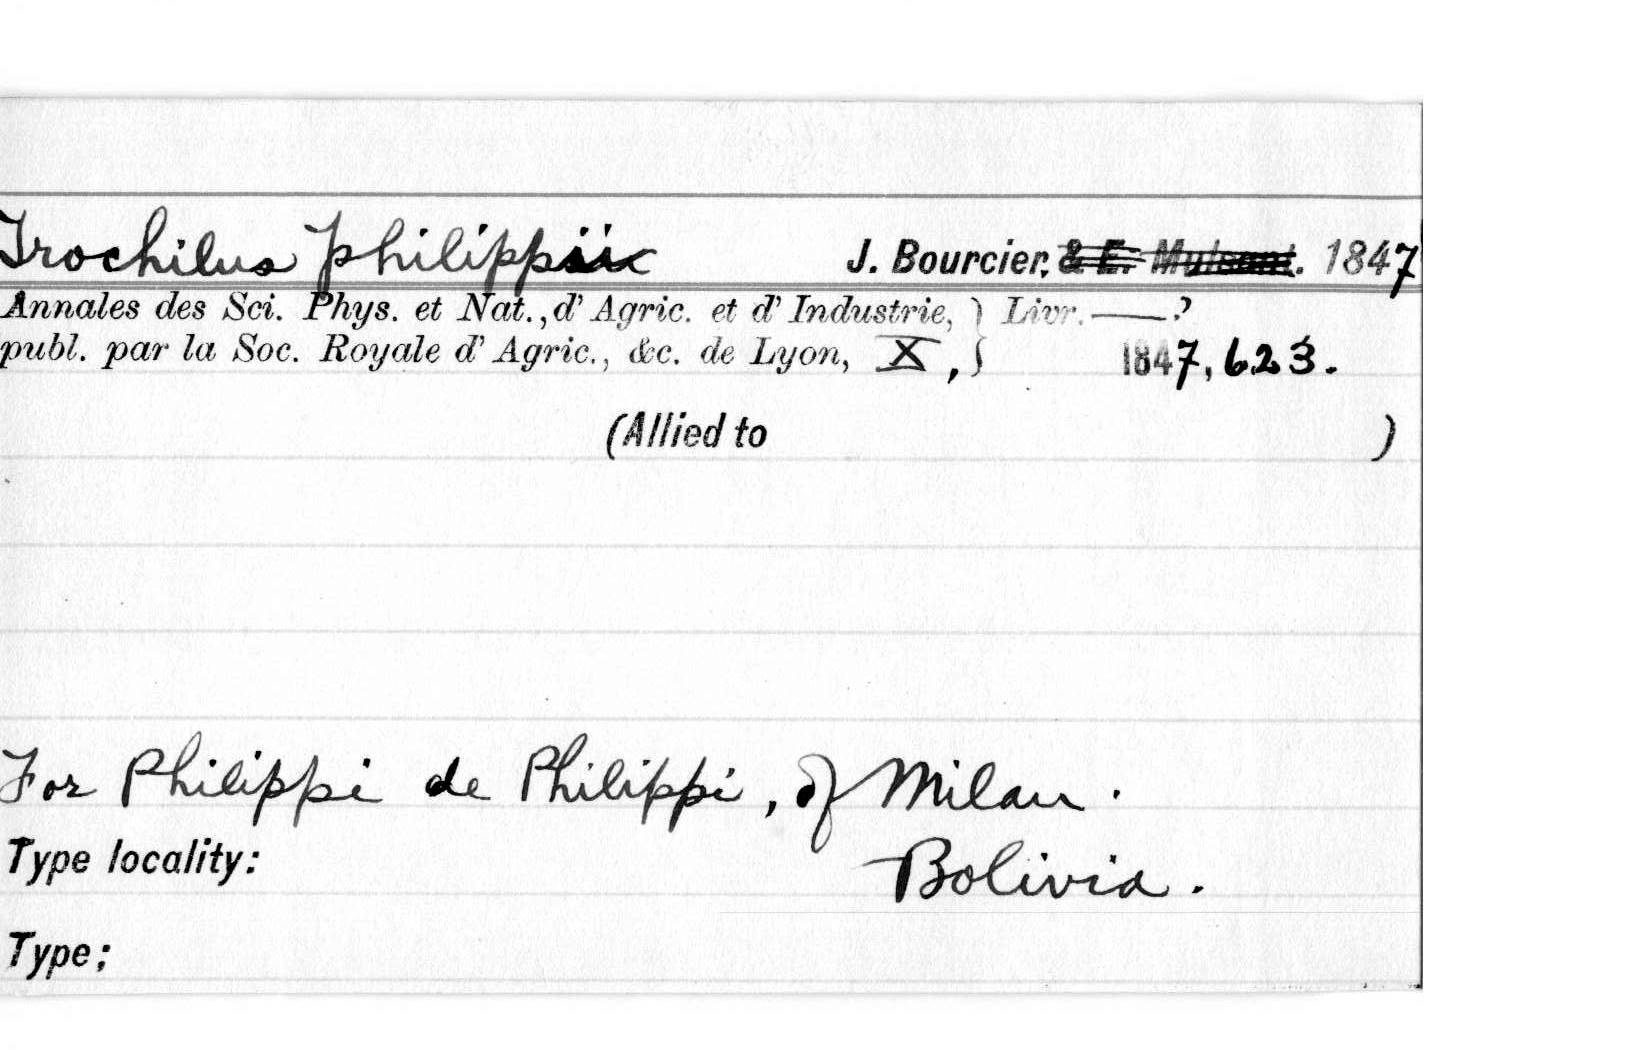 Trochilus philippii J. Bourcier, & E. Mulsant. 1847
Annales des Sci. Phys. et Nat., d' Agric. et d' Industrie, } Livr. —— ?
publ. par la Soc. Royale d' Agric., &c. de Lyon, X, } 1847, 623.
(Allied to )
For Philippi de Philippi, of Milan.
Type locality: Bolivia.
Type: